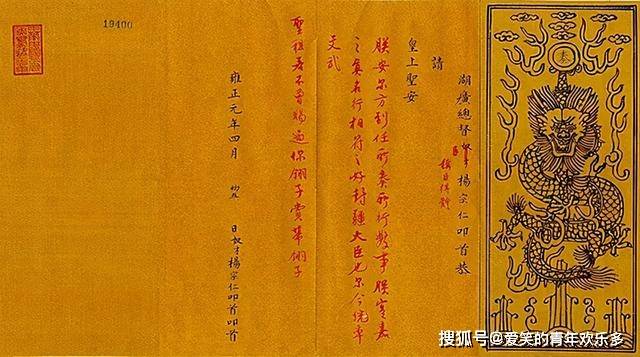 奏
湖廣總督楊宗仁叩首恭
請
皇上聖安
朕安尔方到任所奏所行數事朕實嘉
之真名行相符之好封疆大臣也尔今統率
文武
聖祖若不曾賜過你翎子賞帶翎子
雍正元年四月 日奴才楊宗仁叩首叩首
19400
搜狐号@爱笑的青年欢乐多